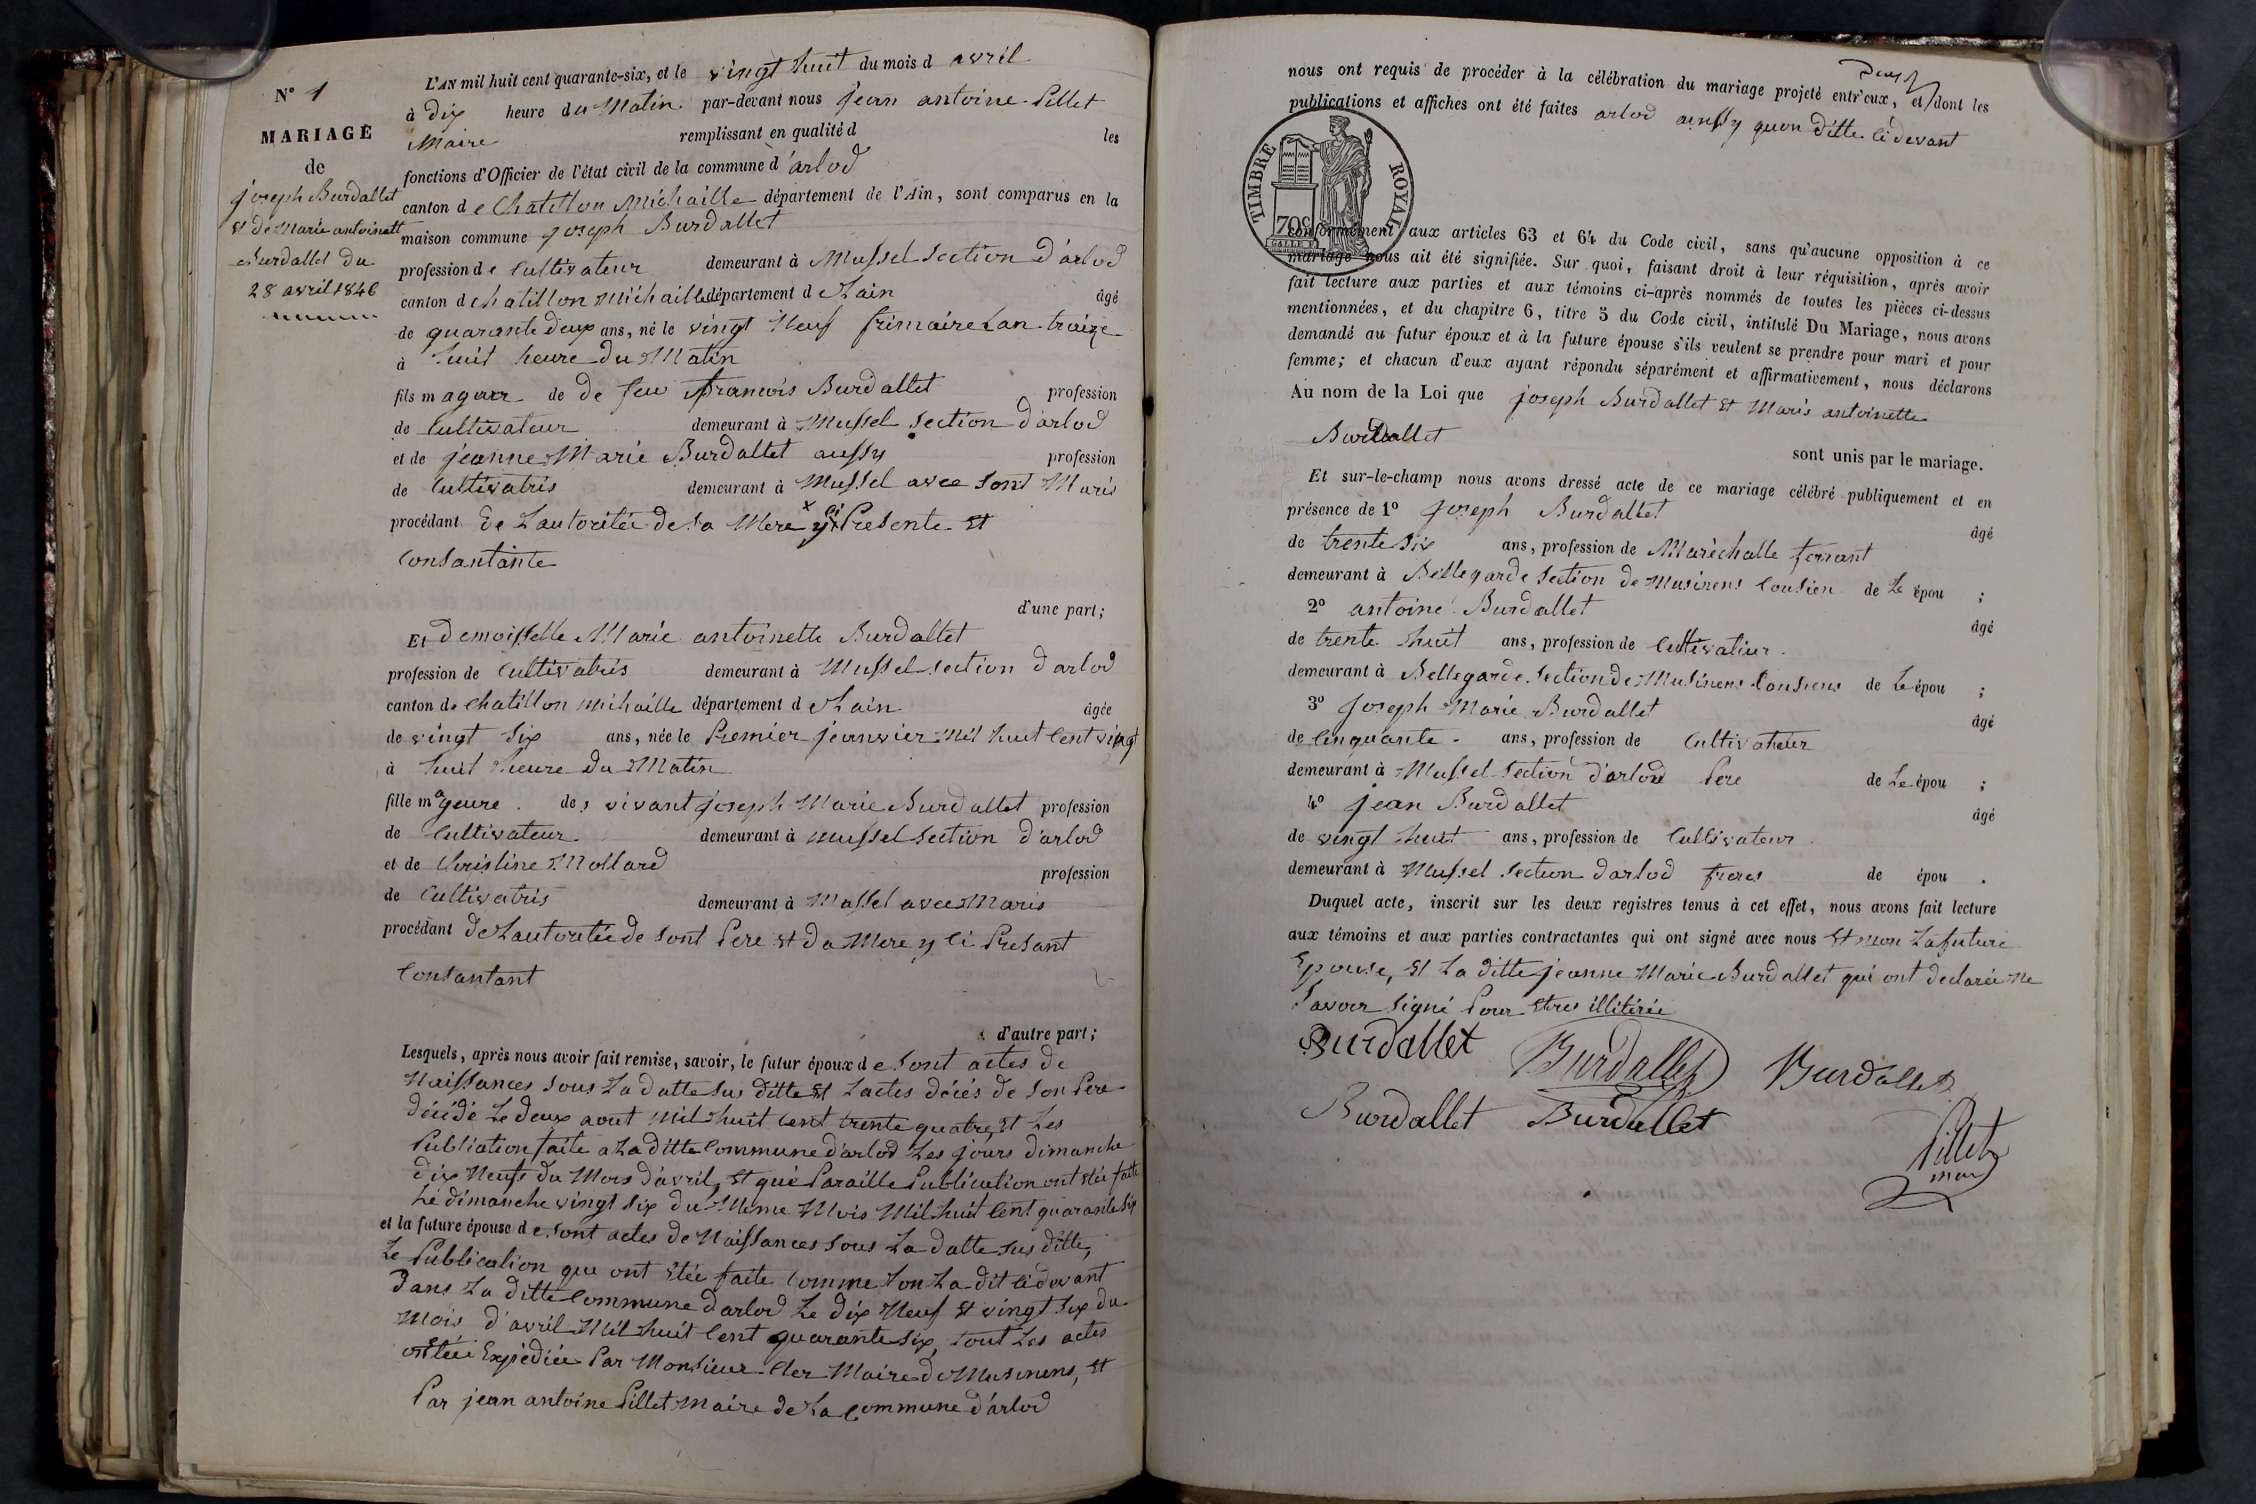 N° 1
MARIAGE
de
joseph Burdallet
et de Marie antoinett
Burdallet du
28 avril 1846
L'AN mil huit cent quarante-six, et le vingt huit du mois d avril
à dix heure du Matin par-devant nous jean antoine Pillet
Maire remplissant en qualité d les
fonctions d'Officier de l'état civil de la commune d'arlod
canton de Chatillon Michaille département de l'Ain, sont comparus en la
maison commune joseph Burdallet
profession de Cultivateur demeurant à Mussel Section d'arlod
canton d chatillon Michaille département de Lain âgé
de quarante deux ans, né le vingt Neuf frimaire Lan traize
à huit heure du Matin
fils mageur de de feu francois Burdallet profession
de Cultivateur demeurant à Mussel Section d'arlod
et de jeanne Marie Burdallet aussy profession
de Cultivatris demeurant à Mussel avec sont Maris
procédant de Lautoritée de sa Mere y ci Presente et
Consantante
d'une part;
Et demoisselle Marie antoinette Burdallet
profession de Cultivatris demeurant à Mussel section d'arlod
canton de Chatillon Mihaille département de Lain âgée
de vingt Six ans, née le Premier jeanvier Mil huit Cent vingt
à huit heure du Matin
fille mageure des vivant joseph Marie Burdallet profession
de Cultivateur demeurant à Mussel Section d'arlod
et de Christine Mollard profession
de Cultivatris demeurant à Mussel avec Maris
procédant de Lautoritée de sont Pere et da Mere y ci Presant
Consantant
d'autre part;
Lesquels, après nous avoir fait remise, savoir, le futur époux de sont actes de
Naissances sous La datte sus ditte et Lactes décés de son Pere
décédé Le deux aout Mil huit Cent trente quatre, et Les
Publiation faite a La ditte Commune d'arlod Les jours dimanche
dix Neufs du Mois d'avril, et que Paraille Publication ont étée faite
Le dimanche vingt six du Meme Mois Mil huit Cent quarante Six
et la future épouse de sont actes de Naissances sous La datte sus ditte,
Le Publication que ont étée faite Comme Lon La dit Ci devant
Dans La ditte Commune d'arlod Le dix Neuf et vingt six du
Mois d'avril Mil huit Cent quarante Six, tout Les actes
ont étée Expédiée Par Monsieur Cler Maire de Musinens, et
Par jean antoine Pillet Maire de La Commune d'arlod
nous ont requis de procéder à la célébration du mariage projeté entr'eux, et dont les
publications et affiches ont été faites arlod ainssy quon ditte Ci devant
TIMBRE ROYAL
70c
conformément aux articles 63 et 64 du Code civil, sans qu'aucune opposition à ce
mariage nous ait été signifiée. Sur quoi, faisant droit à leur réquisition, après avoir
fait lecture aux parties et aux témoins ci-après nommés de toutes les pièces ci-dessus
mentionnées, et du chapitre 6, titre 5 du Code civil, intitulé Du Mariage, nous avons
demandé au futur époux et à la future épouse s'ils veulent se prendre pour mari et pour
femme; et chacun d'eux ayant répondu séparément et affirmativement, nous déclarons
Au nom de la Loi que joseph Burdallet et Maris antoinette
Burdallet
sont unis par le mariage.
Et sur-le-champ nous avons dressé acte de ce mariage célébré publiquement et en
présence de 1° joseph Burdallet âgé
de trente Six ans, profession de Maréchalle ferrant
demeurant à Bellegarde Section de Musinens Cousien de Le épou ;
2° antoine Burdallet âgé
de trente huit ans, profession de Cultivateur
demeurant à Bellegarde Section de Musinens Cousiens de Le épou ;
3° Joseph Marie Burdallet âgé
de Cinquante ans, profession de Cultivateur
demeurant à Mussel Section d'arlod Pere de Le épou ;
4° jean Burdallet âgé
de vingt huit ans, profession de Cultivateur
demeurant à Mussel Section d'arlod freres de épou .
Duquel acte, inscrit sur les deux registres tenus à cet effet, nous avons fait lecture
aux témoins et aux parties contractantes qui ont signé avec nous et non La future
Epouse, et La ditte jeanne Marie Burdallet qui ont declarée ne
savoir Signé Pour etres illitirée
Burdallet Burdallet Burdallet
Burdallet Burdallet
Pillet